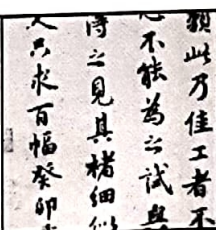 類此乃佳工者不
不能為之試與
得之見其楮細
只求百幅癸卯